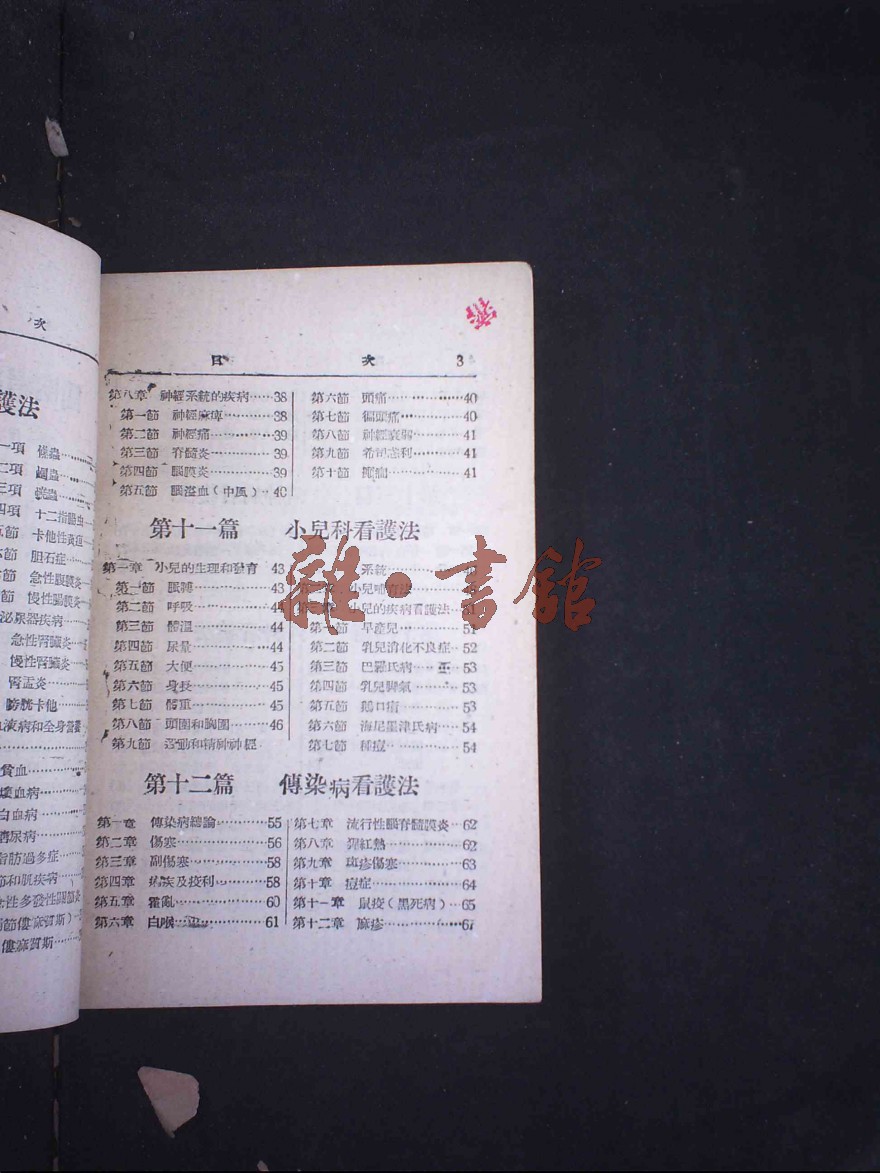 次
護法
一項 蟯蟲
二項
三項
四項 十二指腸虫
節 卡他性黃疸
節 胆石症
節 急性腹膜炎
節 慢性腹膜炎
泌尿器疾病
急性腎臟炎
慢性腎臟炎
腎盂炎
膀胱卡他
血液病和全身營養
貧血
痿血病
白血病
糖尿病
脂肪過多症
節和肌疾病
急性多發性關節炎
節僂麻質斯)
僂麻質斯
目 次 3
第八章 神經系統的疾病……38
第一節 神經麻痺……38
第二節 神經痛……39
第三節 脊髓炎……39
第四節 腦膜炎……39
第五節 腦溢血(中風)··40
第六節 頭痛……40
第七節 偏頭痛……40
第八節 神經衰弱……41
第九節 希司忒利……41
第十節 癲癇……41
第十一篇 小兒科看護法
第一章 小兒的生理和發育 43
第一節 脈搏……43
第二節 呼吸……44
第三節 體溫……44
第四節 尿量……44
第五節 大便……45
第六節 身長……45
第七節 體重……45
第八節 頭圍和胸圍……46
第九節 運動和精神神經
系統
第二章 小兒哺育法
第三章 小兒的疾病看護法 51
第一節 早產兒……51
第二節 乳兒消化不良症··52
第三節 巴羅氏病……53
第四節 乳兒脚氣……53
第五節 鵝口瘡……53
第六節 海尼墨津氏病……54
第七節 種痘……54
第十二篇 傳染病看護法
第一章 傳染病總論……55
第二章 傷寒……56
第三章 副傷寒……58
第四章 痢疾及疫利……58
第五章 霍亂……60
第六章 白喉……61
第七章 流行性腦脊髓膜炎…62
第八章 猩紅熱……62
第九章 斑疹傷寒……63
第十章 痘症……64
第十一章 鼠疫(黑死病)··65
第十二章 麻疹……67
雜·書館